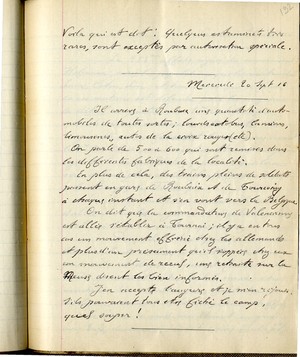 Voilà qui est dit: Quelques estaminets très
rares, sont exceptés par autorisation spéciale.
Mercredi 20 Sept 16
Il arrive à Roubaix une quantité d'auto-
mobiles de toutes sortes; landeaulets, taxis,
limousines, autos de la croix rouge (etc).
On parle de 500 à 600 qui sont remisés dans
les différentes fabriques de la localité.
En plus de cela, des trains pleins de soldats
passent en gare de Roubaix et de Tourcoing
à chaque instant et s'en vont vers la Belgique.
On dit que la commandature de Valenciennes
est allée s'établir à Tournai; il y a en tous
cas un mouvement effréné chez les allemands
et plus d'un présument qu'il s'opère chez eux
un mouvement de recul, une retraite sur la
Meuse disent les bien informés.
J'en accepte l'augure et je m'en réjouis.
S'ils pouvaient tous etre fiché le camp,
quel soupir!